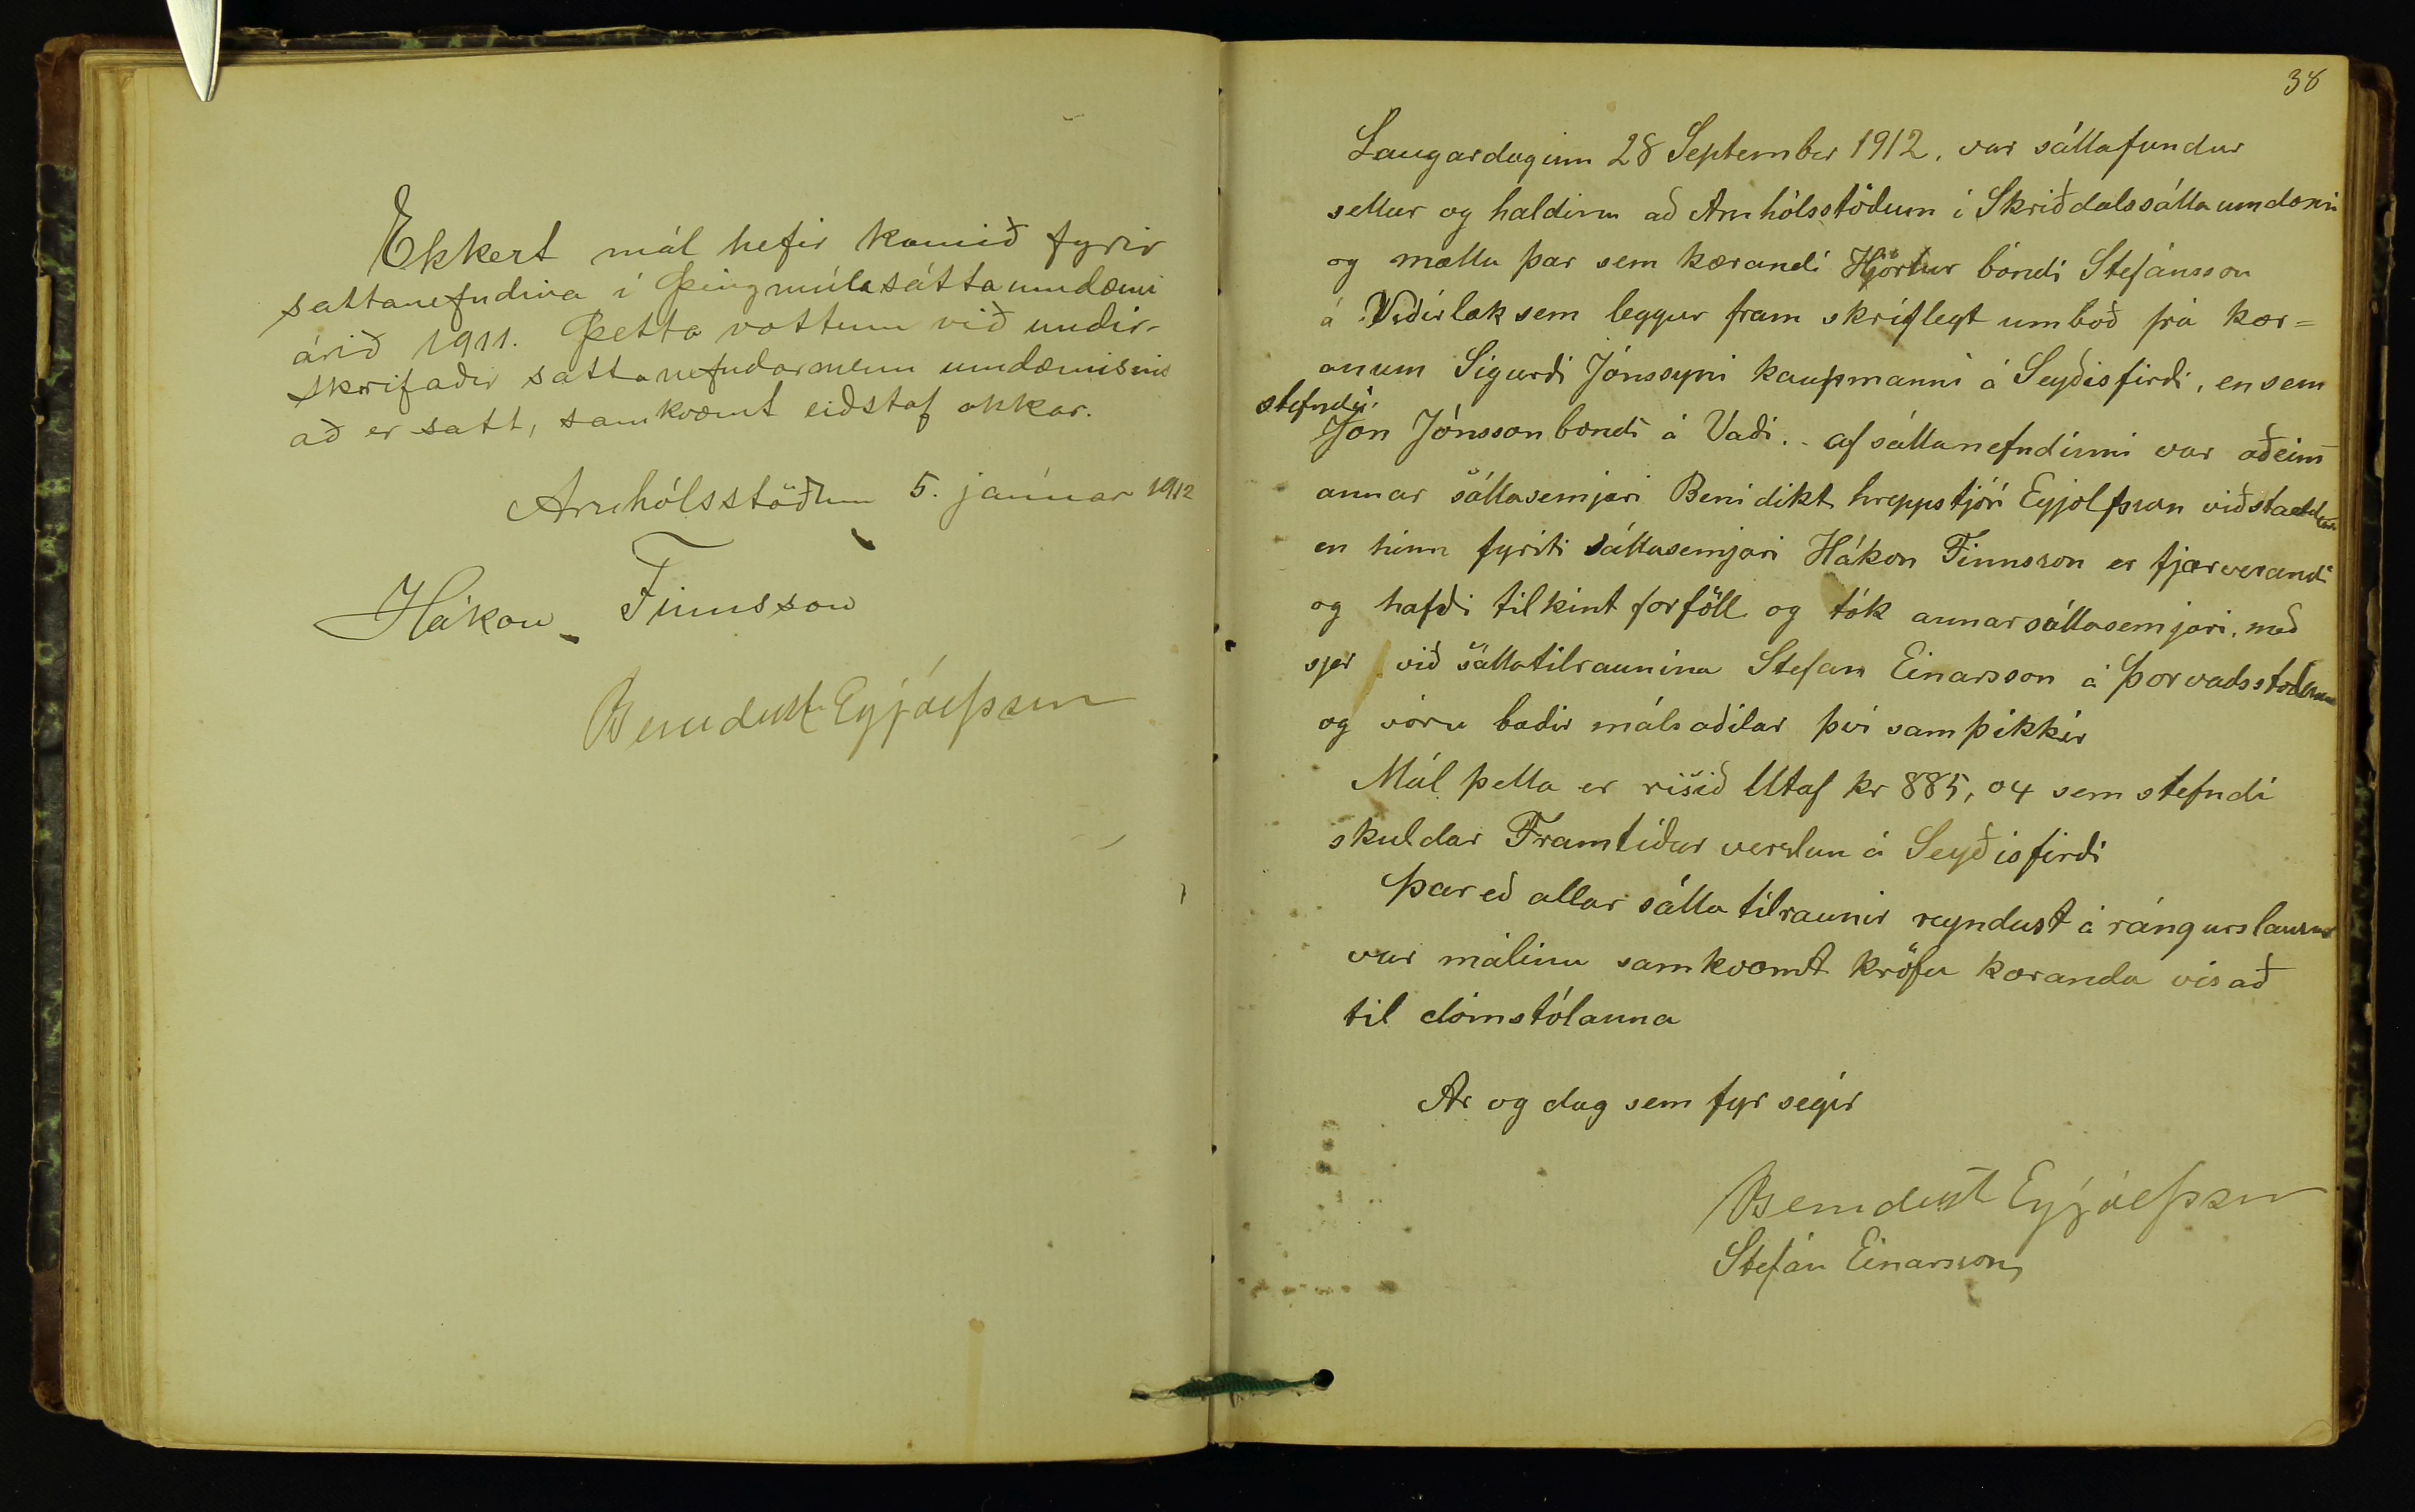 Ekkert mál hefir komið fyrir
sattanefndina í Þingmúlasáttaumdæmi
árið 1911. Þetta vottum við undir-
skrifaðir sattanefndarmenn umdæmisins
að er satt, samkvæmt eiðstaf okkar.
Arnhólsstöðum 5. janúar 1912
Hákon Finnsson
Benedikt Eyjólfsson
38
Laugardaginn 28 September 1912. var sáttafundur
settur og haldinn að Arnhólsstöðum í Skriðdalssáttaumdæmi
og mættu þar sem kærandi Hjörtur bóndi Stefánsson
á Viðirlæk sem leggur fram skriflegt umboð frá kær=
anum Sigurði Jónssyni kaupmanni á Seyðisfirði, en sem
stefndi.
Jón Jónsson bondi á Vaði. - af sáttanefndinni var aðeins
annar sáttasemjari Benidikt hreppstjóri Eyjolfsson viðstaddur
en hinn fyrsti sáttasemjari Hákon Finnsson er fjærverandi
og hafði tilkint forföll og tók annar sáttasemjari, með
sjer við sáttatilraunina Stefan Einarsson á Þorvaðsstoðum
og vóru baðir málsaðilar því samþikkir
Mál þetta er risið Utaf kr 885,04 sem stefndi
skuldar Framtiðar verslun á Seyðisfirði
Þareð allar sátta tilraunir reyndust árángurslausar
var málinu samkvæmt kröfu kæranda visað
til dómstólanna
Ár og dag sem fyr segir
Benedikt Eyjólfsson
Stefán Einarsson